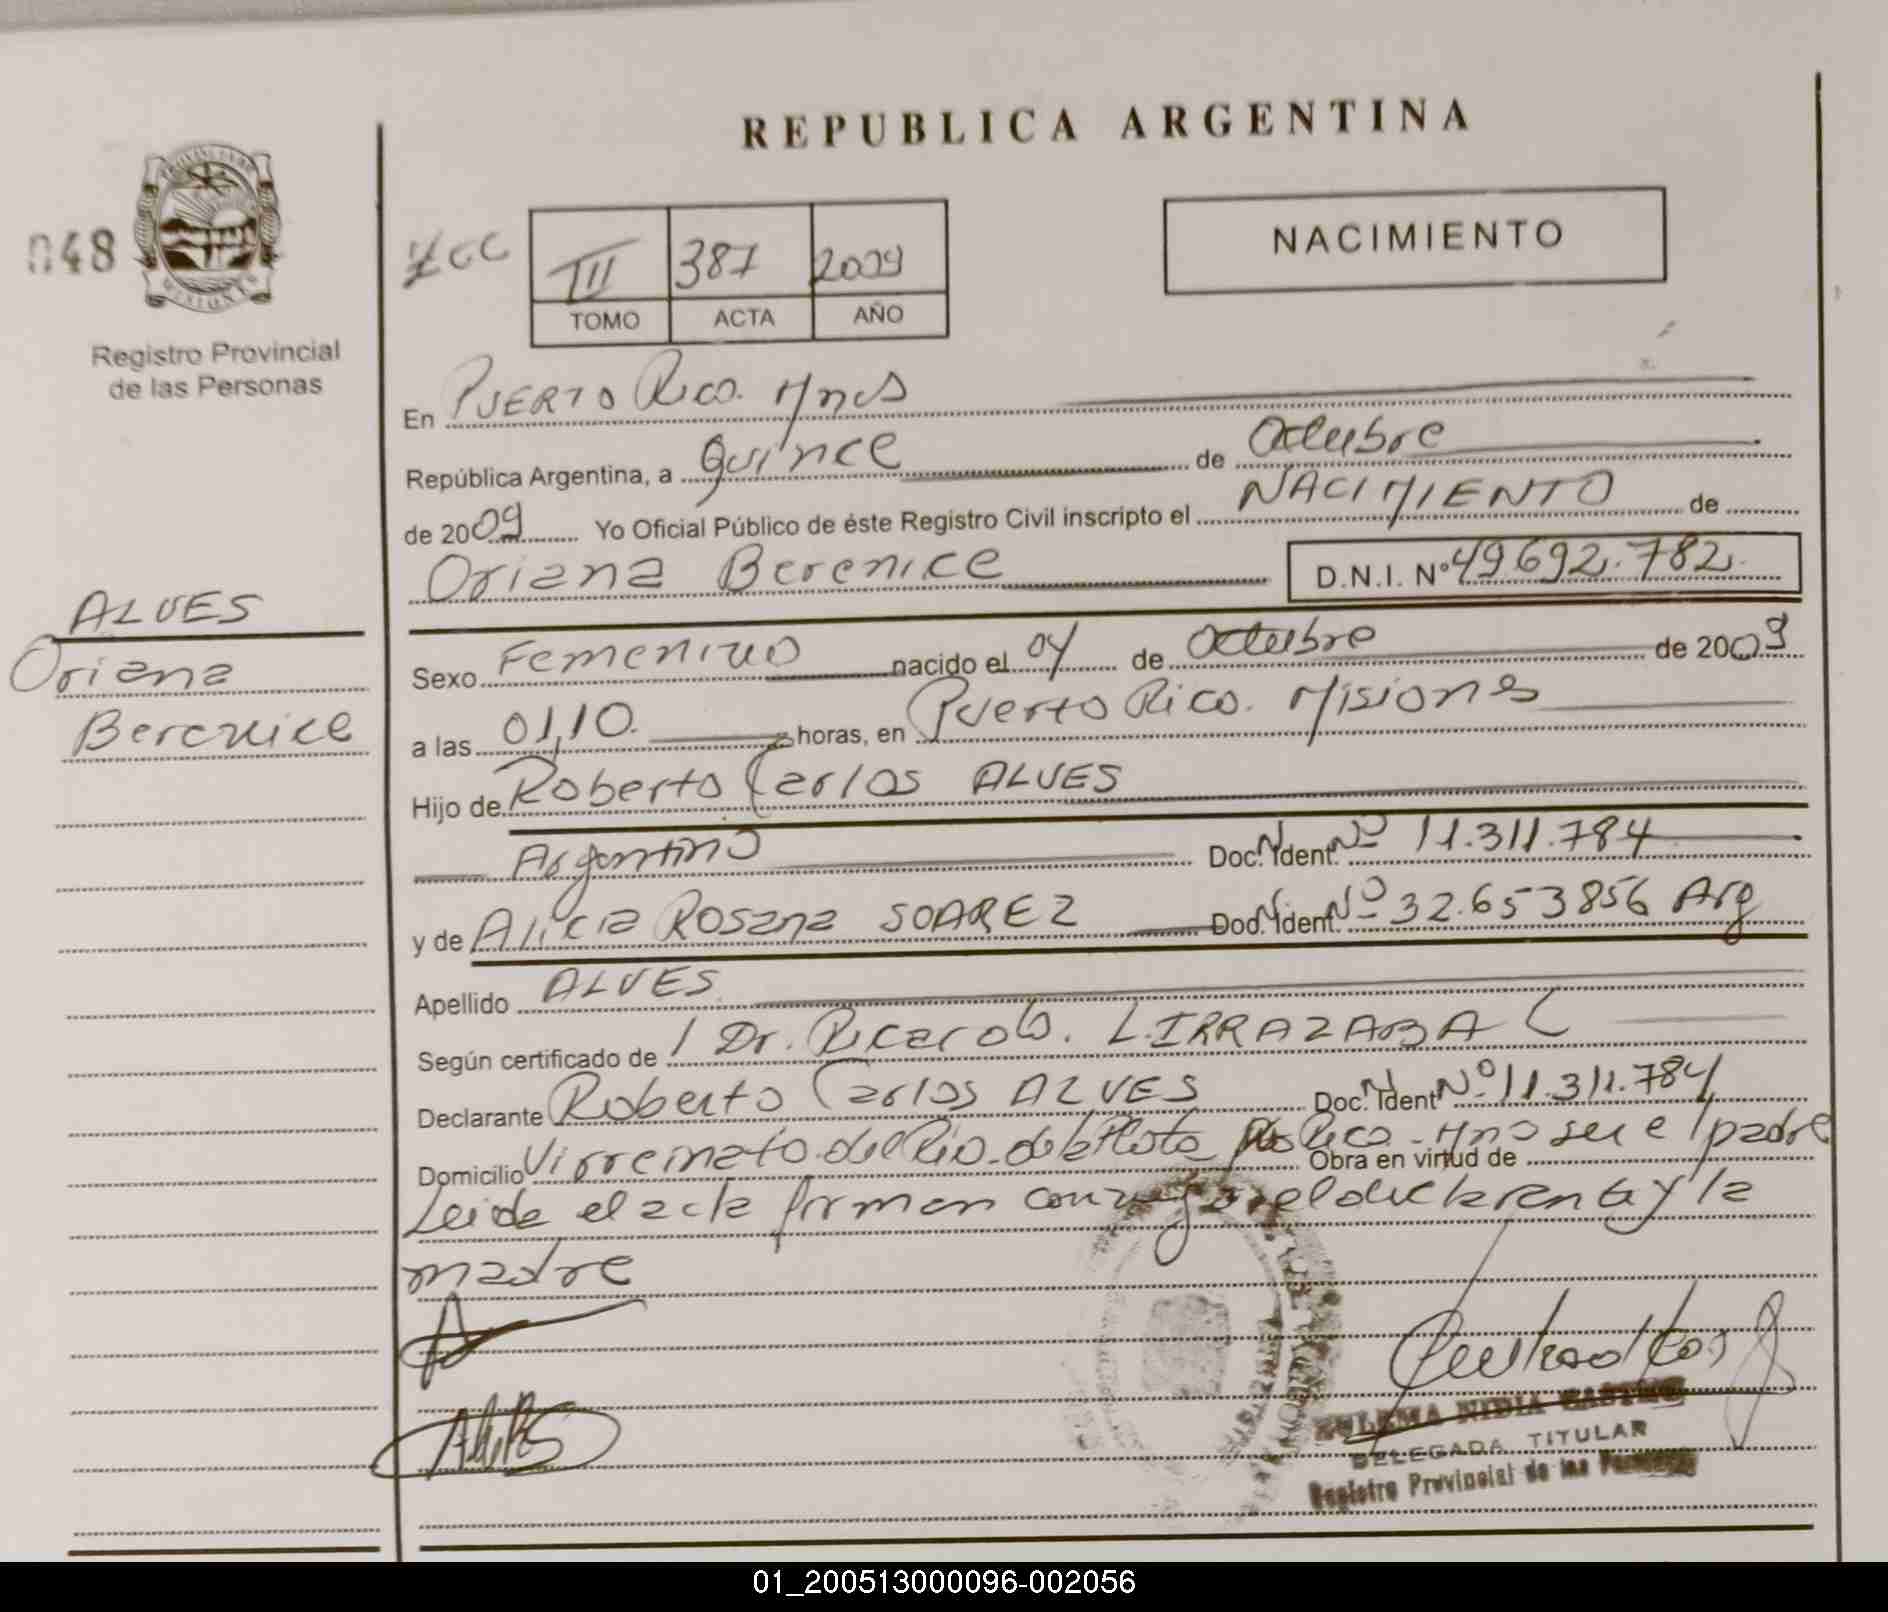 REPUBLICA ARGENTINA
048
PROVINCIA DE
MISIONES
Registro Provincial
de las Personas
III 387 2009
TOMO ACTA AÑO
NACIMIENTO
En Puerto Rico. Mnes
República Argentina, a Quince de Octubre
de 2009 Yo Oficial Público de éste Registro Civil inscripto el NACIMIENTO de
Oriana Berenice D.N.I. Nº 49692.782
ALVES
Oriana
Berenice
Sexo Femenino nacido el 04 de Octubre de 2009
a las 01,10. horas, en Puerto Rico. Misiones
Hijo de Roberto Carlos ALVES
Argentino Doc. Ident. Nº 11.311.784
y de Alicia Rosana SOAREZ Doc. Ident. Nº 32.653856 Arg
Apellido ALVES
Según certificado de Dr. Ricardo. LIRRAZABAL
Declarante Roberto Carlos ALVES Doc. Ident Nº 11.311.784
Domicilio Virreinato del Rio de la Plata Pto Rico - Mnes Obra en virtud de ser el padre
Leida el acta firman conmigo el declarante y la
madre
ZULEMA NIDIA
DELEGADA TITULAR
Registro Provincial de las Personas
01_200513000096-002056